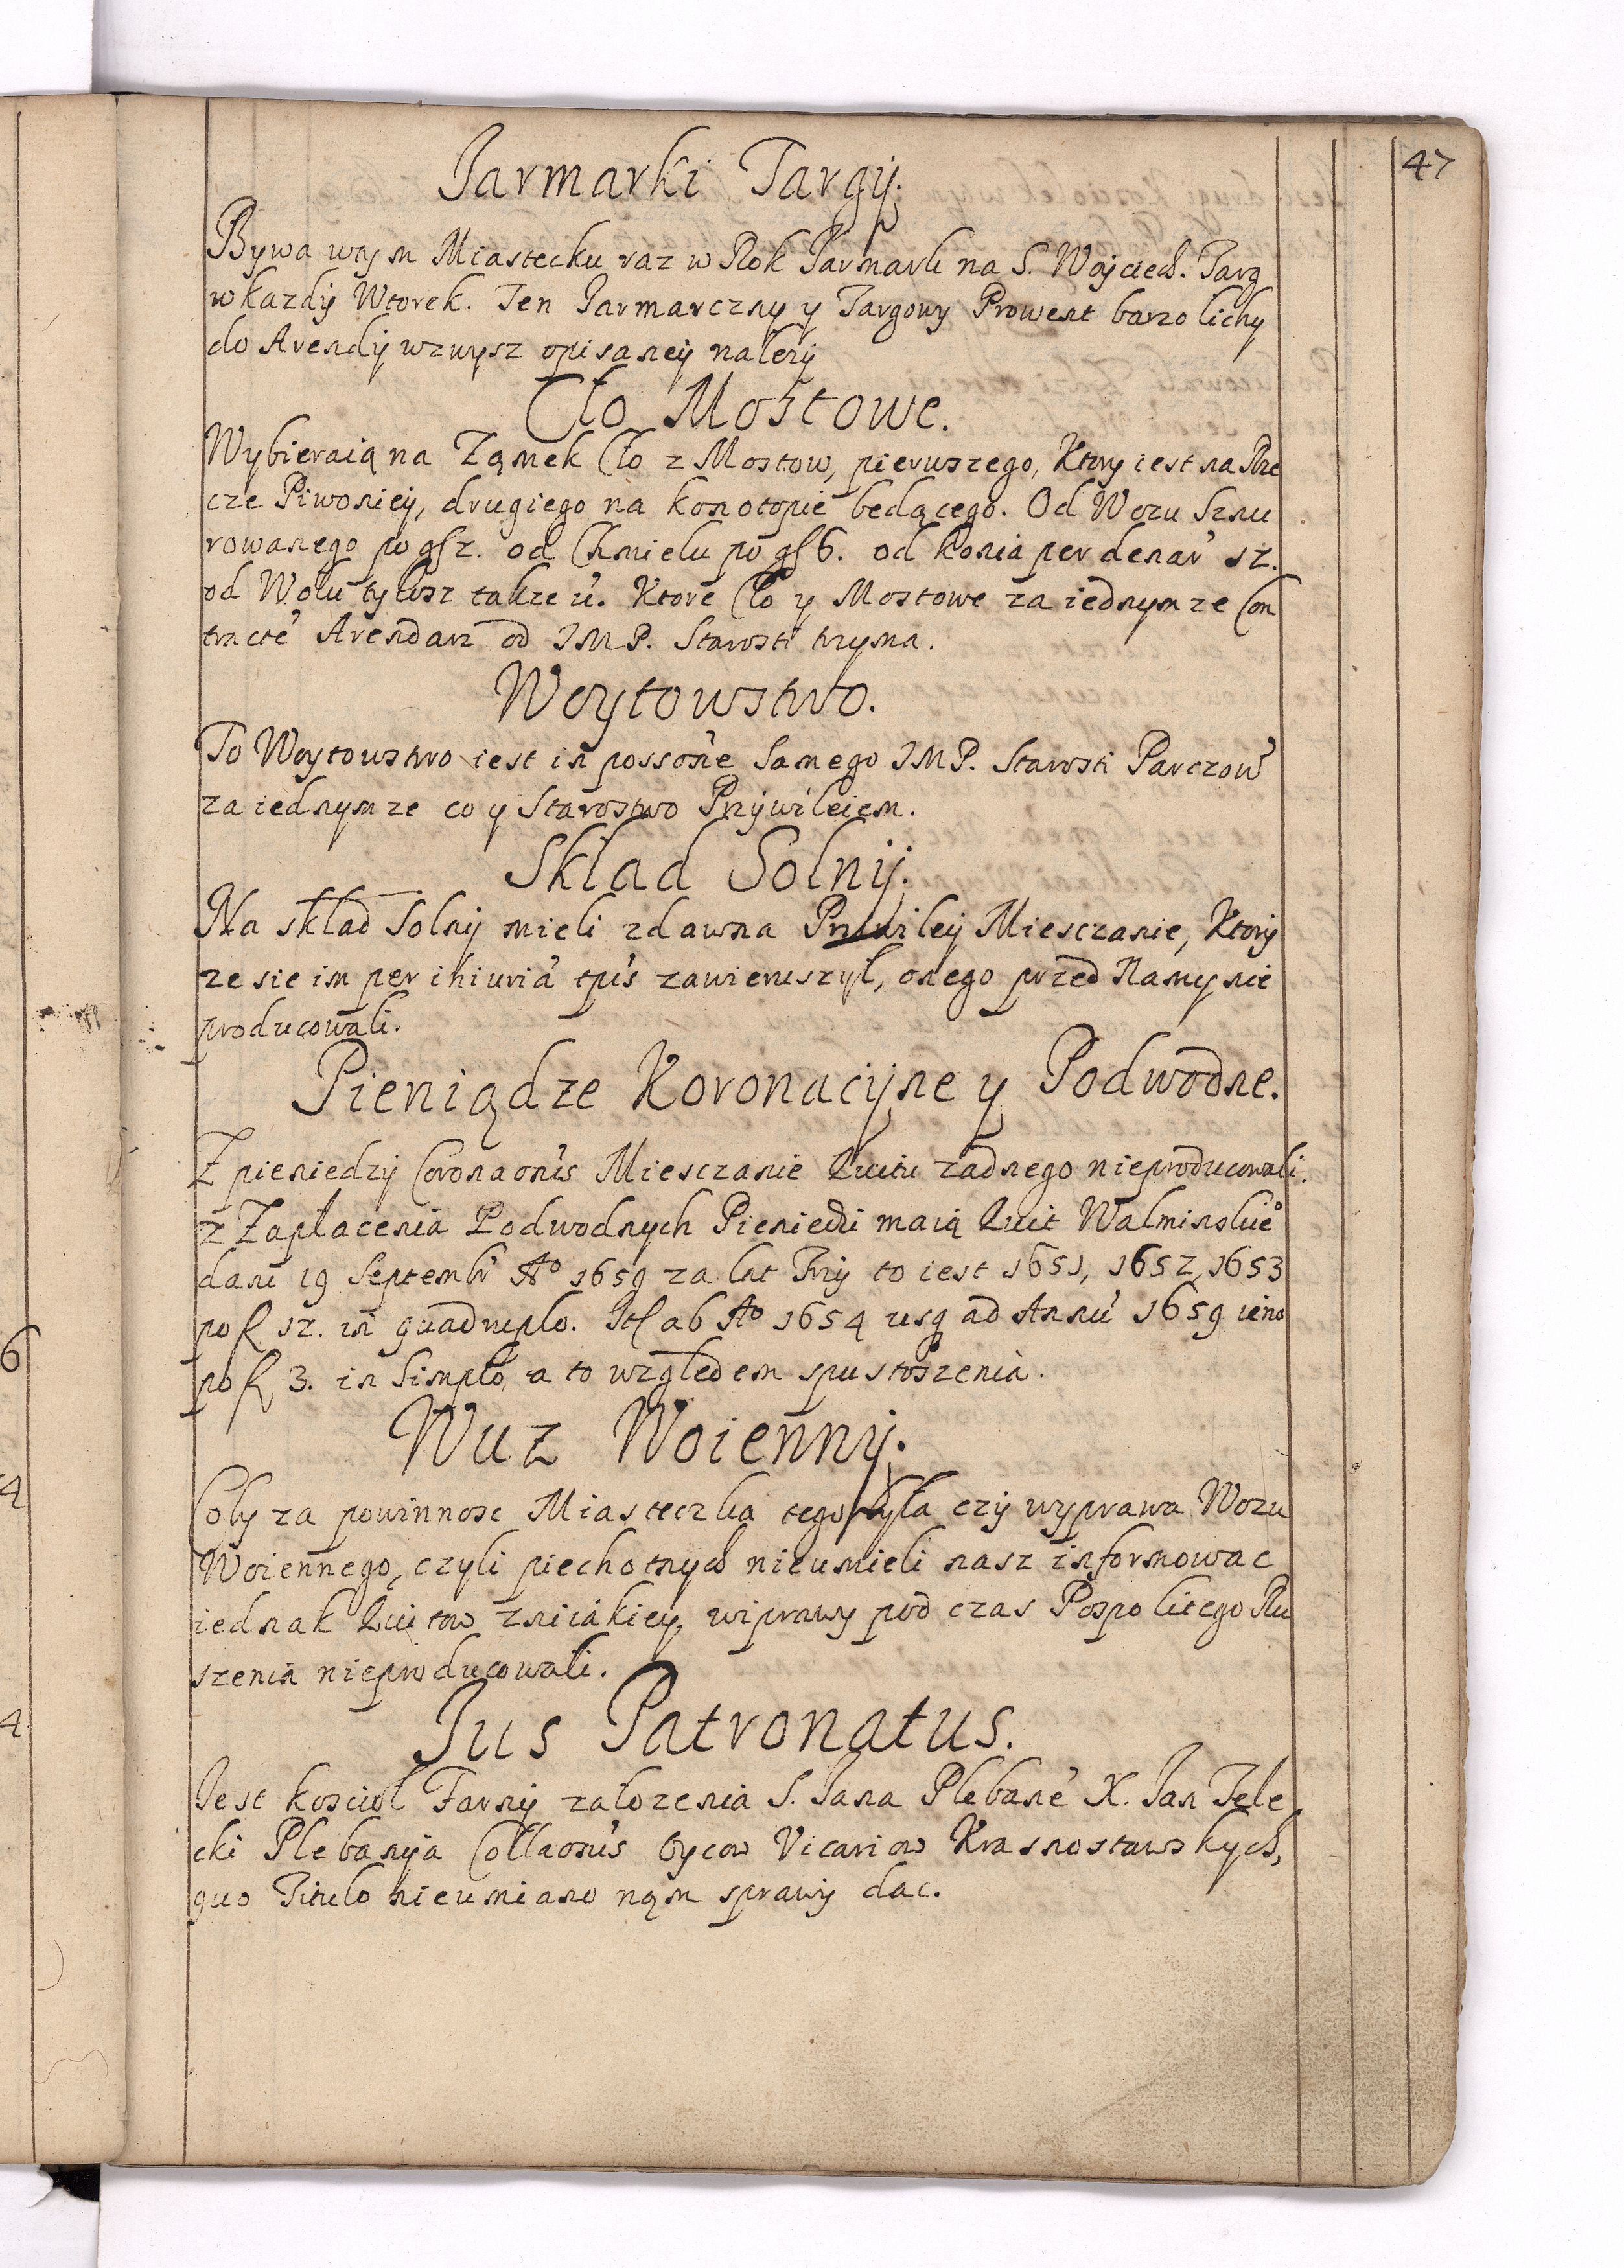 47
Jarmarki Targÿ.
Bywa wtym Miastecku raz w Rok Jarmark na S. Wojciech. Targ
w kazdÿ Wtorek. Ten Jarmarczny y Targowy Prowent barzo lichy
do Arendÿ wzwysz opisaneÿ nalezÿ
Cło Mostowe.
Wybieraią na Ząmek Cło z Mostow, pierwszego, Ktory iest na Rze
cze Piwonieÿ, drugiego na konotopie bedącego. Od Wozu Sznu
rowanego po gſ 2. od Chmielu po gſ 6. od konia per denar 12.
od Wołu tylosz takze. Ktore Cło y Mostowe za iednymze Con
tracte Arendarz od JMP. Starosti trzyma.
Woytowstwo.
To Woytowstwo iest in possone Samego JMP. Starosti Parczow
za iednymze co y Starostwo Przÿwileiem.
Skład Solnÿ.
Na skład Solnÿ mieli zdawna Prziwileÿ Miesczanie, Ktorÿ
ze sie im per ihiuria tpis zawieruszył, onego przed Namy nie
producowali.
Pieniądze Koronacÿne y Podwodne.
Z pieniedzÿ Coronaonis Miesczanie Kwitu zadnego nieproducowali.
z Zapłacenia Podwodnych Pieniedzi maią Kwit Walminskie
dani 19 Septembr Aº 1659 za lat Trzÿ to iest 1651, 1652, 1653
po f 12. in quadruplo. It ab Aº 1654 usq ad Annu 1659
po f 3. in Simplo, a to wzgledem spustoszenia.
Wuz Woiennÿ.
Coby za powinnosc Miasteczka tego była czÿ wyprawa Wozu
Woiennego, czyli piechotnych nieumieli nasz informowac
iednak Kwitow zniiakiey wiprawy pod czas Pospolitego Ru
szenia nieproducowali.
Jus Patronatus.
Jest kosciol Farnÿ załozenia S. Jana Plebane X. Jan Tele
cki Plebanÿa Collaonis Oycow Vicariow Krasnostawskych,
quo Titulo nieumiano nąm sprawÿ dac.
6
4
4